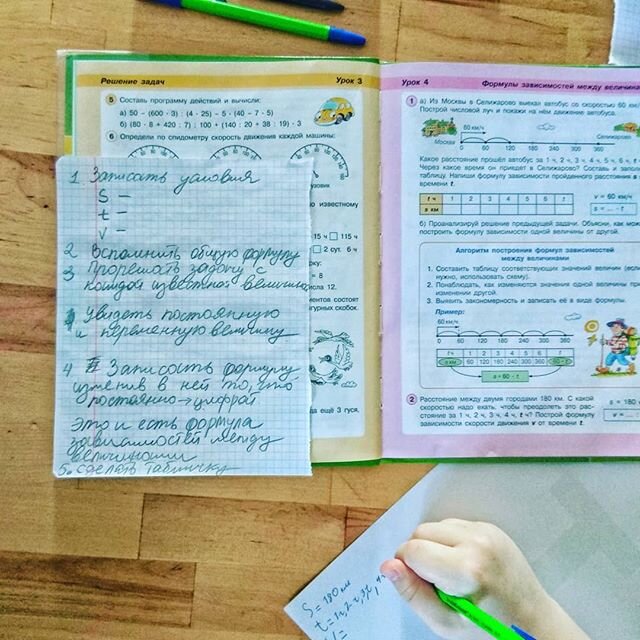 Решение задач Урок 3
5 Составь программу действий и вычисли:
а) 50 – (600 · 3) : (4 · 25) – 5 · (40 – 7 · 5)
б) (80 · 8 + 420 : 7) : 100 + (140 : 20 + 38 : 19) · 3
6 Определи по спидометру скорость движения каждой машины:
узовик
известному
15 ч 115 ч
2 сут. 6 ч
рку:
= 8
числа 12.
ментов состоят
игурных скобок.
да ещё 3 гуся.
1. Записать условия
S –
t –
v –
2 Вспомнить общую формулу
3 Прорешать задачу с
каждой известной величиной
Увидеть постоянную
и переменную величину
4 Записать формулу
изменив в ней то, что
постоянно → цифрой
Это и есть формула
зависимостей между
величинами
5. сделать табличку
Урок 4 Формулы зависимостей между величина
1 а) Из Москвы в Селижарово выехал автобус со скоростью 60 км
Построй числовой луч и покажи на нём движение автобуса.
60 км/ч
Москва 0 60 120 180 240 300 360 Селижарово
Какое расстояние прошёл автобус за 1 ч, 2 ч, 3 ч, 4 ч, 5 ч, 6 ч, t
Через какое время он приедет в Селижарово? Составь и запол
таблицу. Напиши формулу зависимости пройденного расстояния s
времени t.
t ч 1 2 3 4 5 6 t
s км
v = 60 км/ч
s = ... · t
б) Проанализируй решение предыдущей задачи. Объясни, как мож
построить формулу зависимости одной величины от другой.
Алгоритм построения формул зависимостей
между величинами
1. Составить таблицу соответствующих значений величин (если
нужно, использовать схему).
2. Понаблюдать, как изменяются значения одной величины при
изменении другой.
3. Выявить закономерность и записать её в виде формулы.
Пример:
60 км/ч
0 60 120 180 240 300 360
t ч 1 2 3 4 5 6 t
s км 60 120 180 240 300 360 60 · t
s = 60 · t
2 Расстояние между двумя городами 180 км. С какой
скоростью надо ехать, чтобы преодолеть это рас-
стояние за 1 ч, 2 ч, 3 ч, 4 ч, t ч? Построй формулу
зависимости скорости движения v от времени t.
S = 180 км
t = 1ч, 2ч, 3ч, 4ч
v =